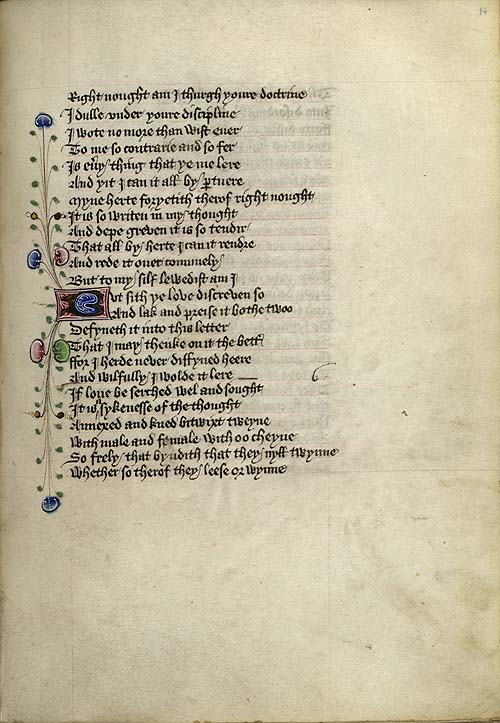 94
Right nought am I thurgh youre doctrine
I dulle vnder youre discipline
I wote no more than wist euer
To me so contrarie and so fer
Is euery thing that ye me lere
And yit I can it all by partuere
Myne herte foryetith therof right nought
It is so writen in my thought
And depe greven it is so tendir
That all by herte I can it rendre
And rede it ouer comunely
But to my silf lewedist am I
But sith ye love discreven so
And lak and preise it bothe twoo
Defyneth it into this letter
That I may thenke on it the bett
ffor I herde never diffyned heere
And wilfully I wolde it lere
If loue be serched wel and sought
It is sykenesse of the thought
Annexed and kned bitwixt tweyne
With male and female with oo cheyne
So frely that byndith that they nyll twynne
Whether so therof they leese or wynne